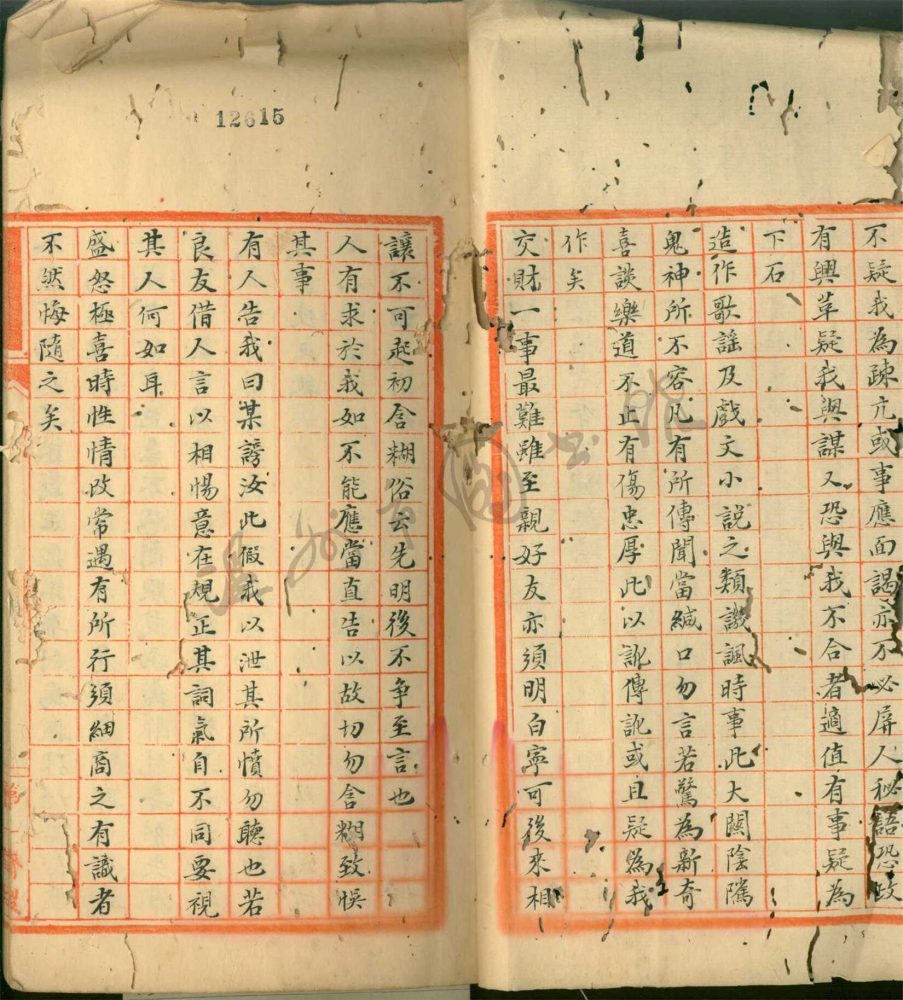 不疑我為疎亢或事應面謁亦不必屏人秘語恐政
有興革疑我與謀又恐與我不合者適值有事疑為
下石
造作歌謠及戲文小說之類譏諷時事此大關陰隲
鬼神所不容凡有所傳聞當緘口勿言若驚為新奇
喜談樂道不止有傷忠厚此以訛傳訛或且疑為我
作矣
交財一事最難雖至親好友亦須明白寧可後來相
12615
讓不可起初含糊俗云先明後不争至言也
人有求於我如不能應當直告以故切勿含糊致悞
其事
有人告我曰某謗汝此假我以泄其所憤勿聽也若
良友借人言以相惕意在規正其詞氣自不同要視
其人何如耳
盛怒極喜時性情改常遇有所行須細商之有識者
不然悔隨之矣